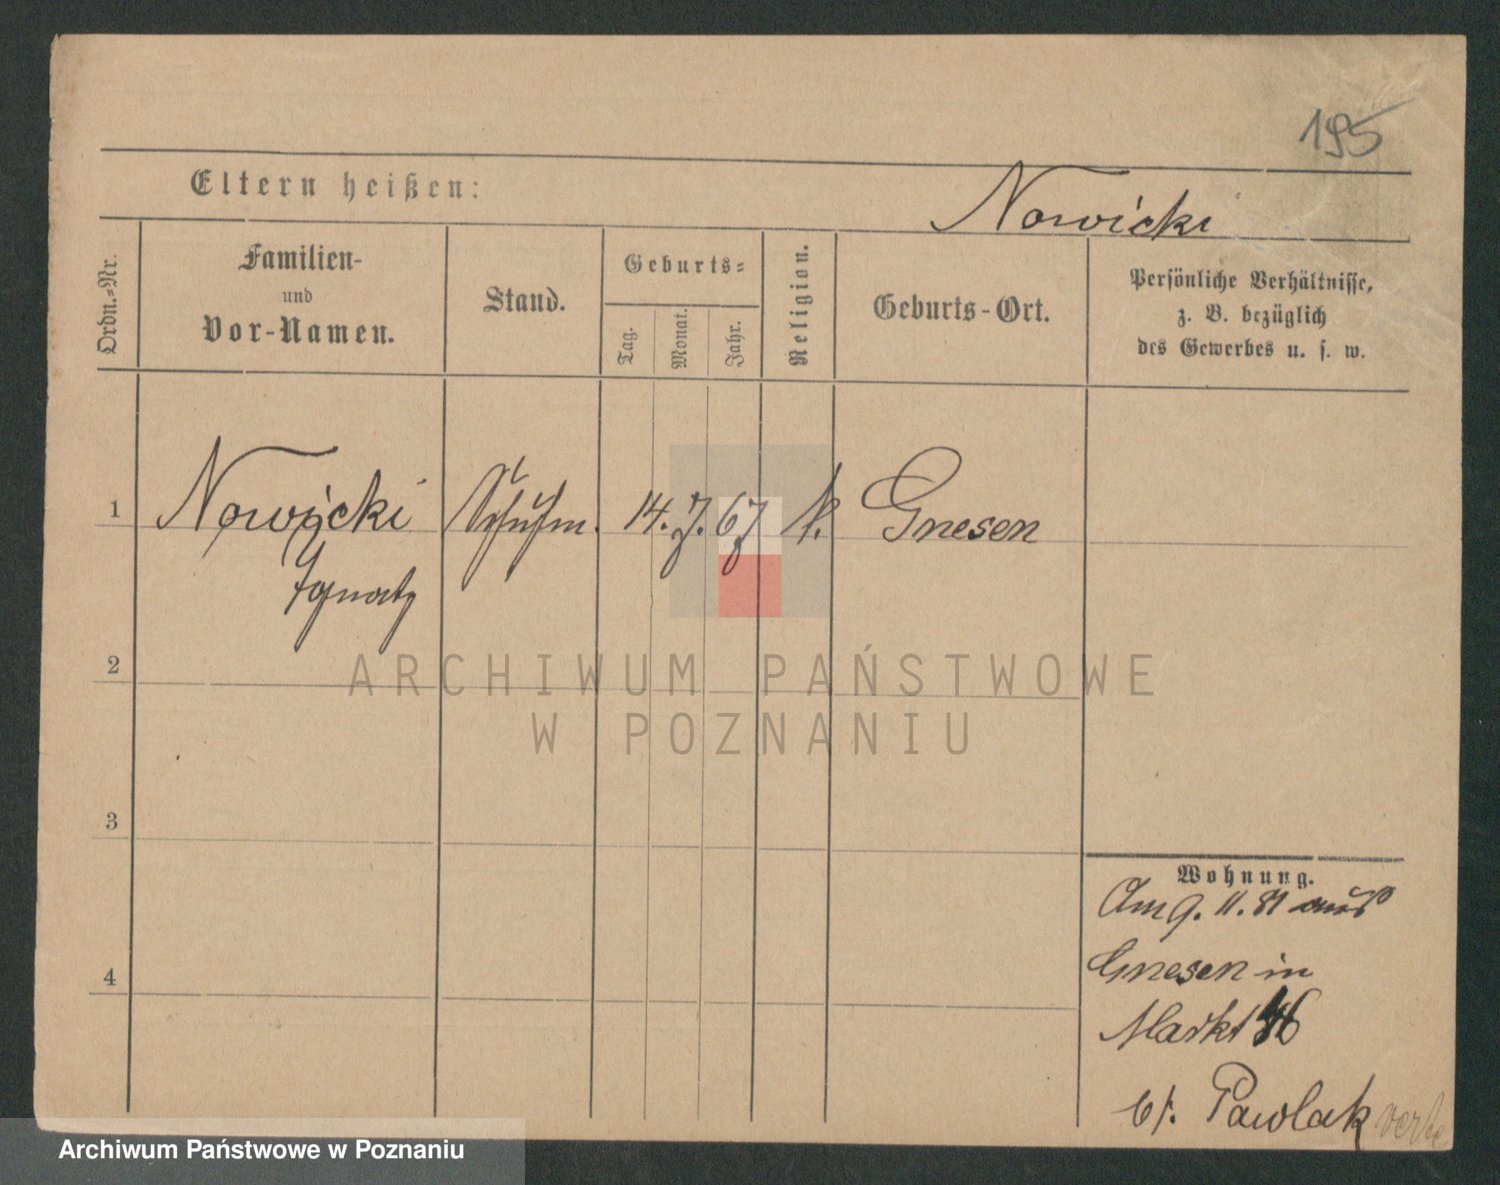 195
Eltern heißen:
Nowicki
Ordn.=Nr.
Familien-
und
Vor-Namen.
Stand.
Geburts=
Tag.
Monat.
Jahr.
Religion.
Geburts-Ort.
Persönliche Verhältnisse,
z. B. bezüglich
des Gewerbes u. s. w.
1 Nowicki Schuhm. 14. 7. 67 k. Gnesen
Ignatz
2
ARCHIWUM PAŃSTWOWE
W POZNANIU
3
Wohnung.
Am 9. 11. 81 aus
Gnesen in
4
Markt 46
b/. Pawlak
Archiwum Państwowe w Poznaniu